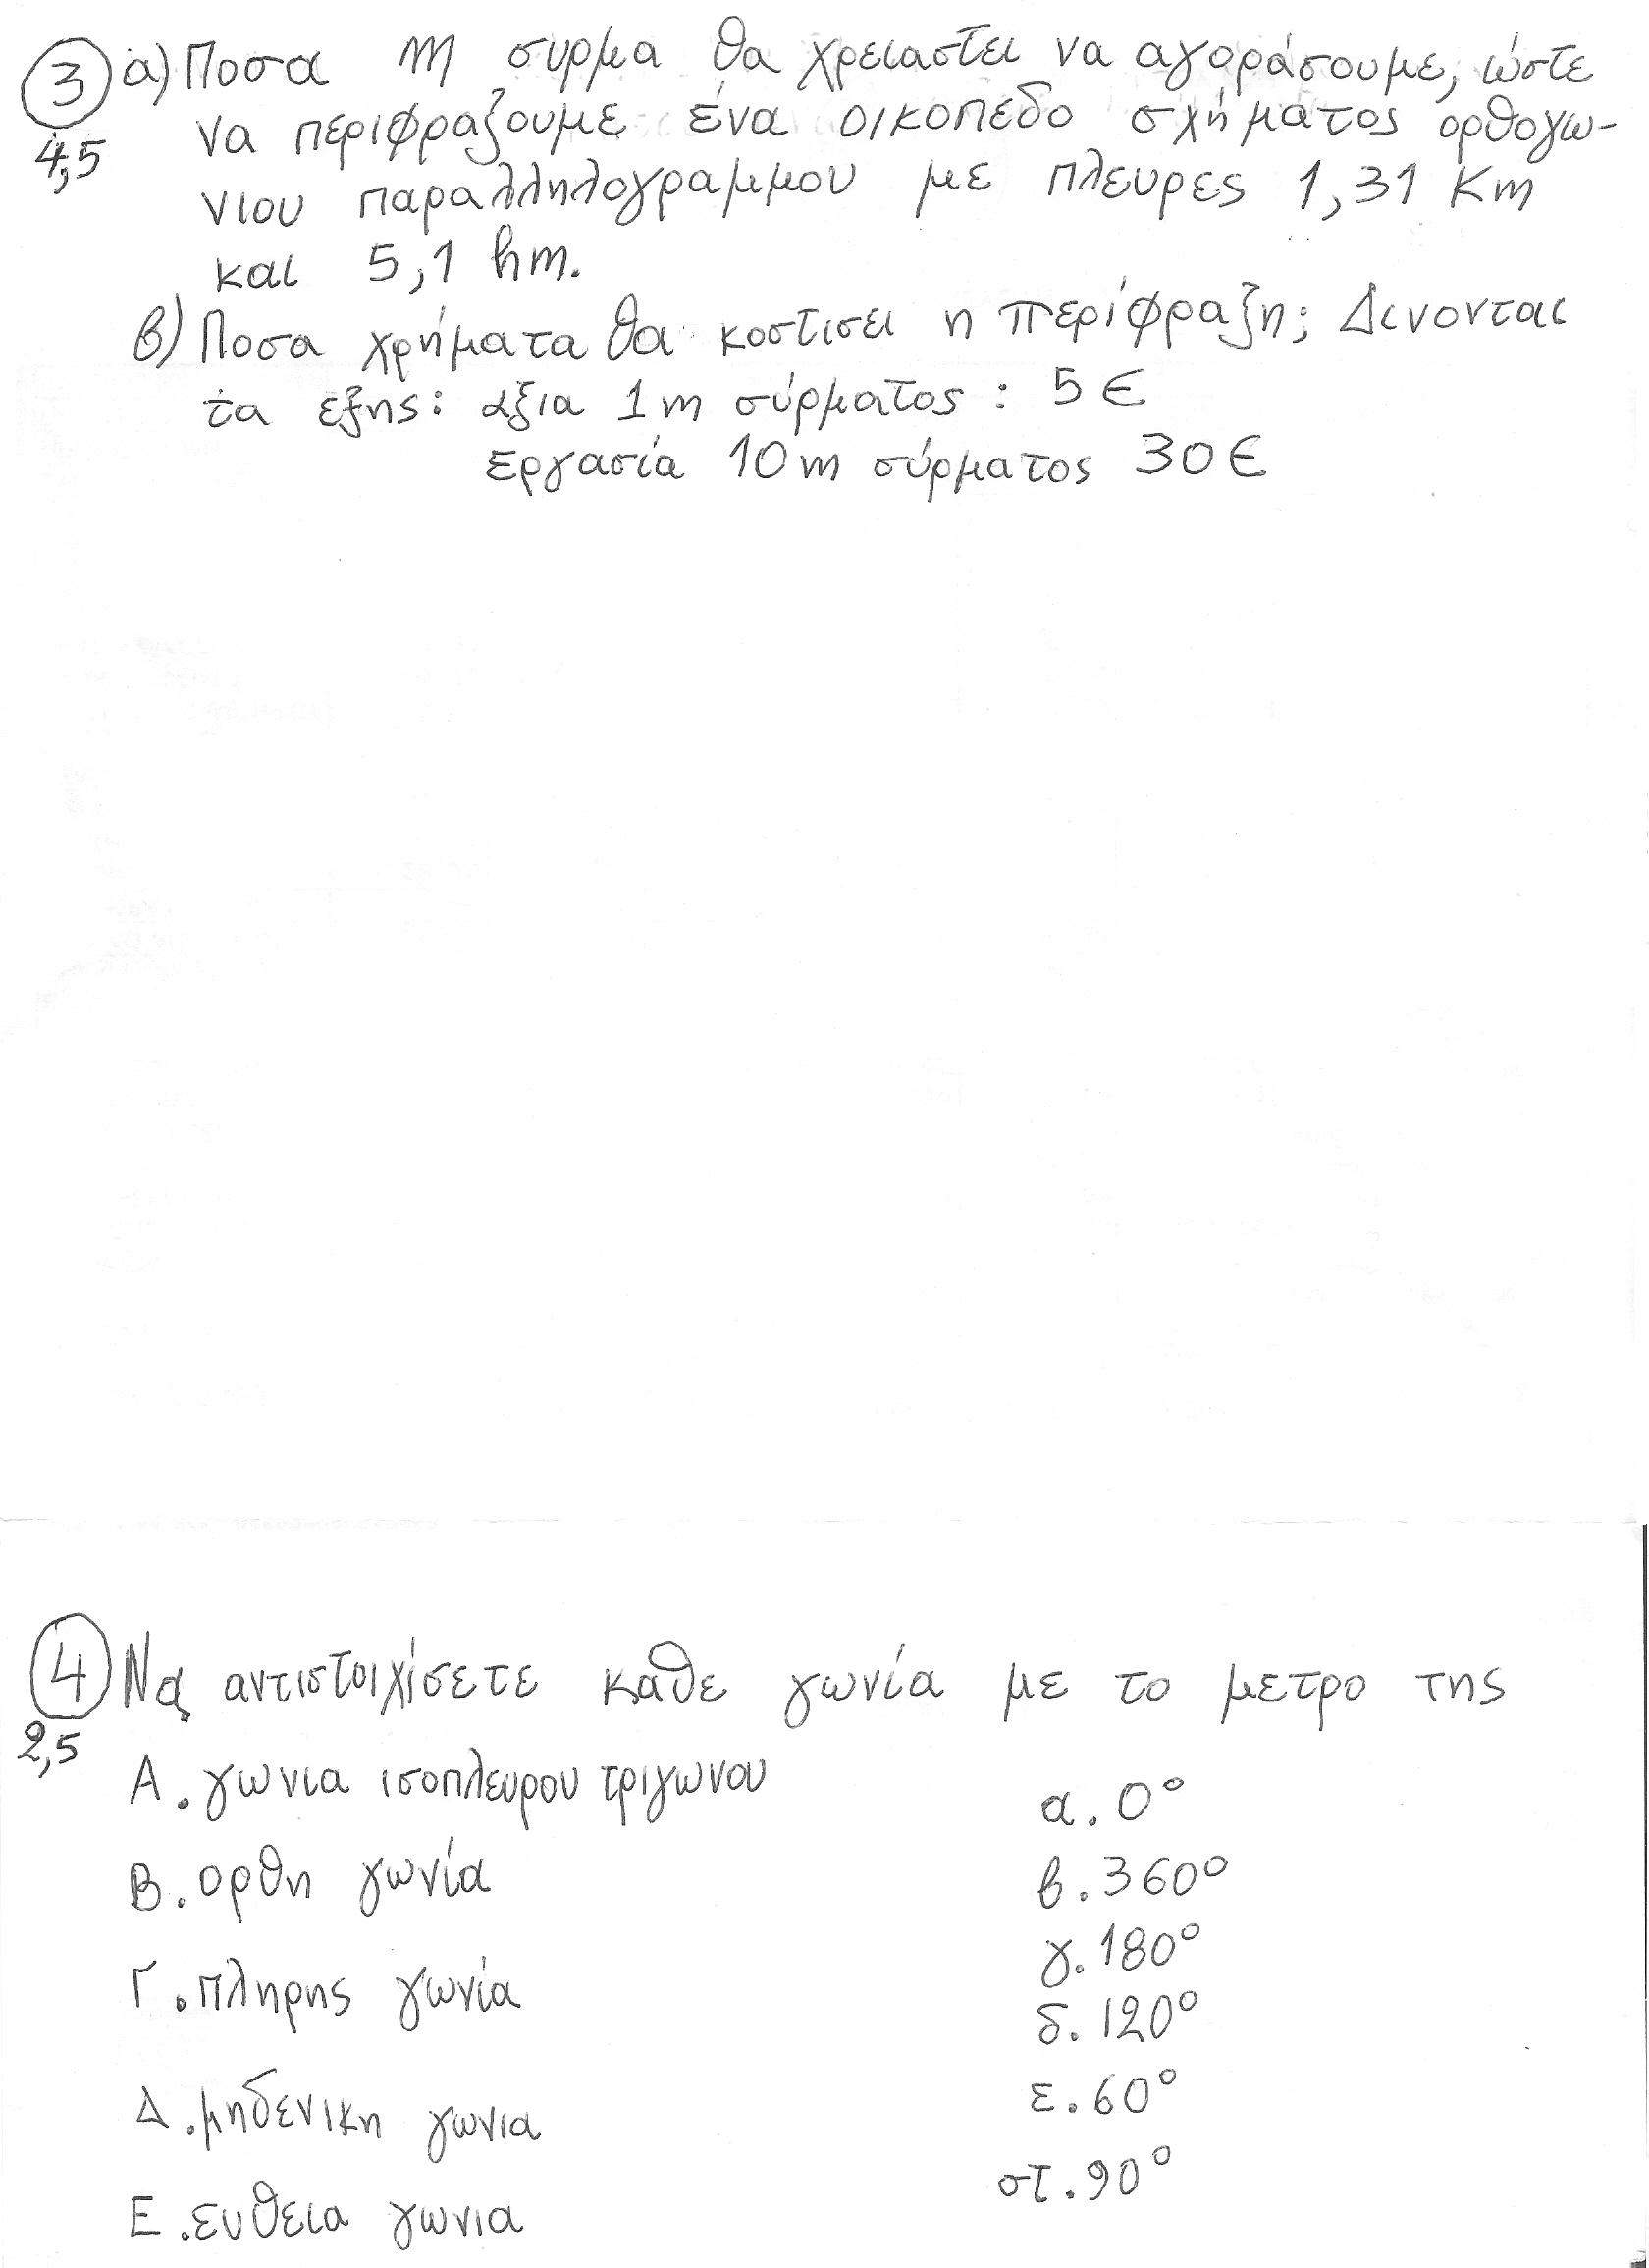 3 α) Ποσα m συρμα θα χρειαστει να αγοράσουμε, ώστε
4,5 να περιφραξουμε ένα οικοπεδο σχήματος ορθογω-
νιου παραλληλογραμμου με πλευρες 1,31 Km
και 5,1 hm.
β) Ποσα χρήματα θα κοστισει η περίφραξη; Δινονται
τα εξης: αξια 1m σύρματος: 5€
εργασία 10m σύρματος 30€
4 Να αντιστοιχίσετε καθε γωνία με το μετρο της
2,5
Α. γωνια ισοπλευρου τριγωνου α. 0°
Β. ορθη γωνία β. 360°
γ. 180°
Γ. πληρης γωνία δ. 120°
ε. 60°
Δ. μηδενικη γωνια
στ. 90°
Ε. ευθεια γωνια